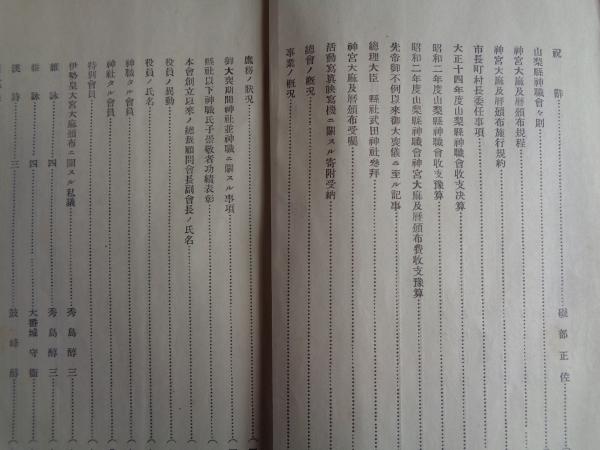 祝辭……磯部正佐
山梨縣神職會々則……
神宮大麻及曆頒布規程……
神宮大麻及曆頒布施行規約……
市長町村長委任事項……
大正十四年度山梨縣神職會收支決算……
昭和二年度山梨縣神職會收支豫算……
昭和二年度山梨縣神職會神宮大麻及曆頒布費收支豫算……
先帝御不例以來御大喪儀ニ至ル記事……
總理大臣縣社武田神社參拜……
神宮大麻及曆頒布受囑……
活動寫眞映寫機ニ關スル寄附受納……
總會ノ概況……
事業ノ概況……
庶務ノ狀況……
御大喪期間神社並神職ニ關スル事項……
縣社以下神職氏子崇敬者功績表彰……
本會創立以來ノ總裁顧問會長副會長ノ氏名……
役員ノ異動……
役員ノ氏名……
神職タル會員……
神社タル會員……
特別會員……
伊勢皇大宮大麻頒布ニ關スル私議……秀島醇三
雜詠……四……秀島醇三
雜詠……四……大番城守衞
漢詩……三……鼓峰醇